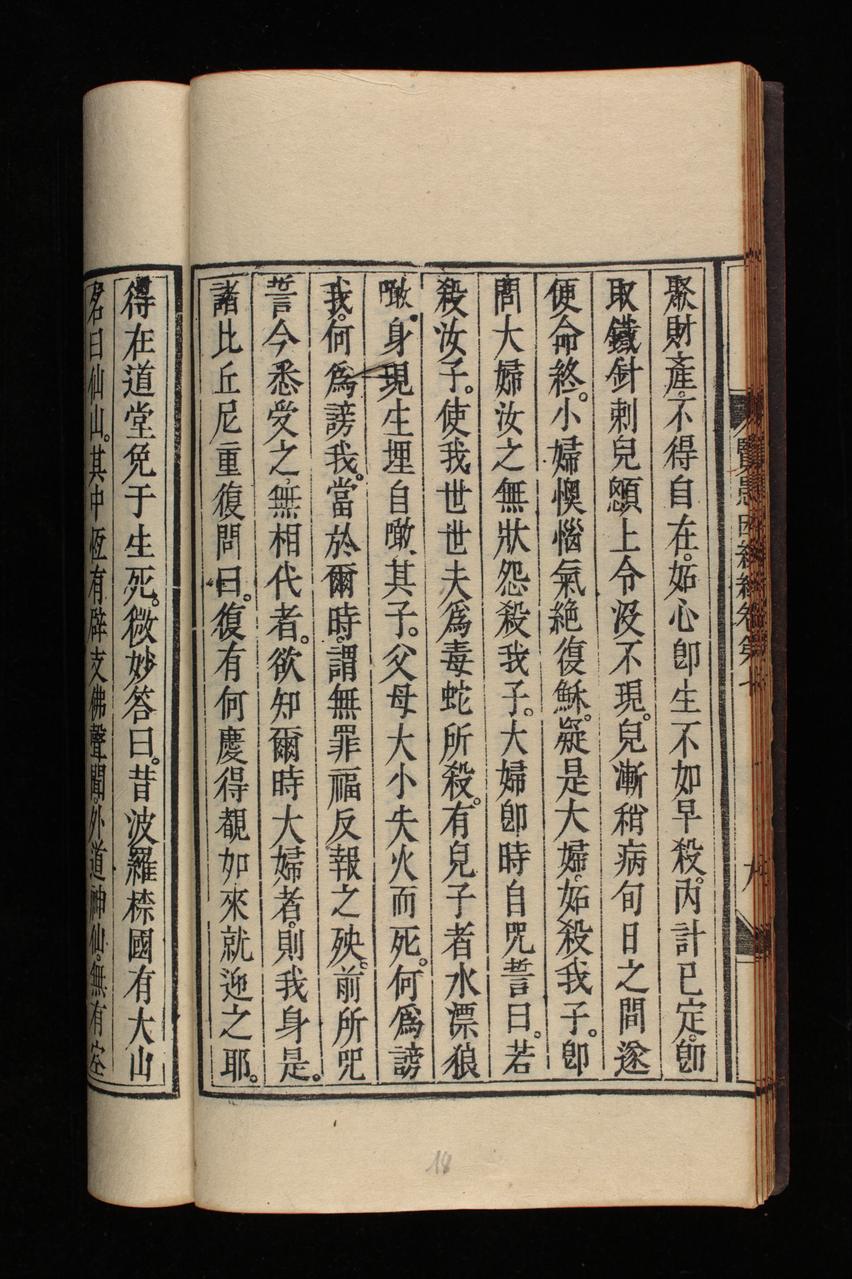 賢愚因緣經卷第
九
聚財產。不得自在。妬心卽生不如早殺。內計已定。卽
取鐵針刺兒顖上令沒不現。兒漸稍病旬日之間遂
便命終。小婦懊惱氣絕復穌。疑是大婦。妬殺我子。卽
問大婦汝之無狀怨殺我子。大婦卽時自咒誓曰。若
殺汝子。使我世世夫爲毒蛇所殺。有兒子者水漂狼
噉。身現生埋自噉。其子。父母大小失火而死。何爲謗
我。何爲謗我。當於爾時。謂無罪福反報之殃。前所咒
誓今悉受之無相代者。欲知爾時大婦者。則我身是。
諸比丘尼重復問曰。復有何慶得覩如來就迎之耶。
得在道堂免于生死。微妙答曰。昔波羅㮈國有大山
名曰仙山。其中恆有辟支佛聲聞。外道神仙。無有空
18